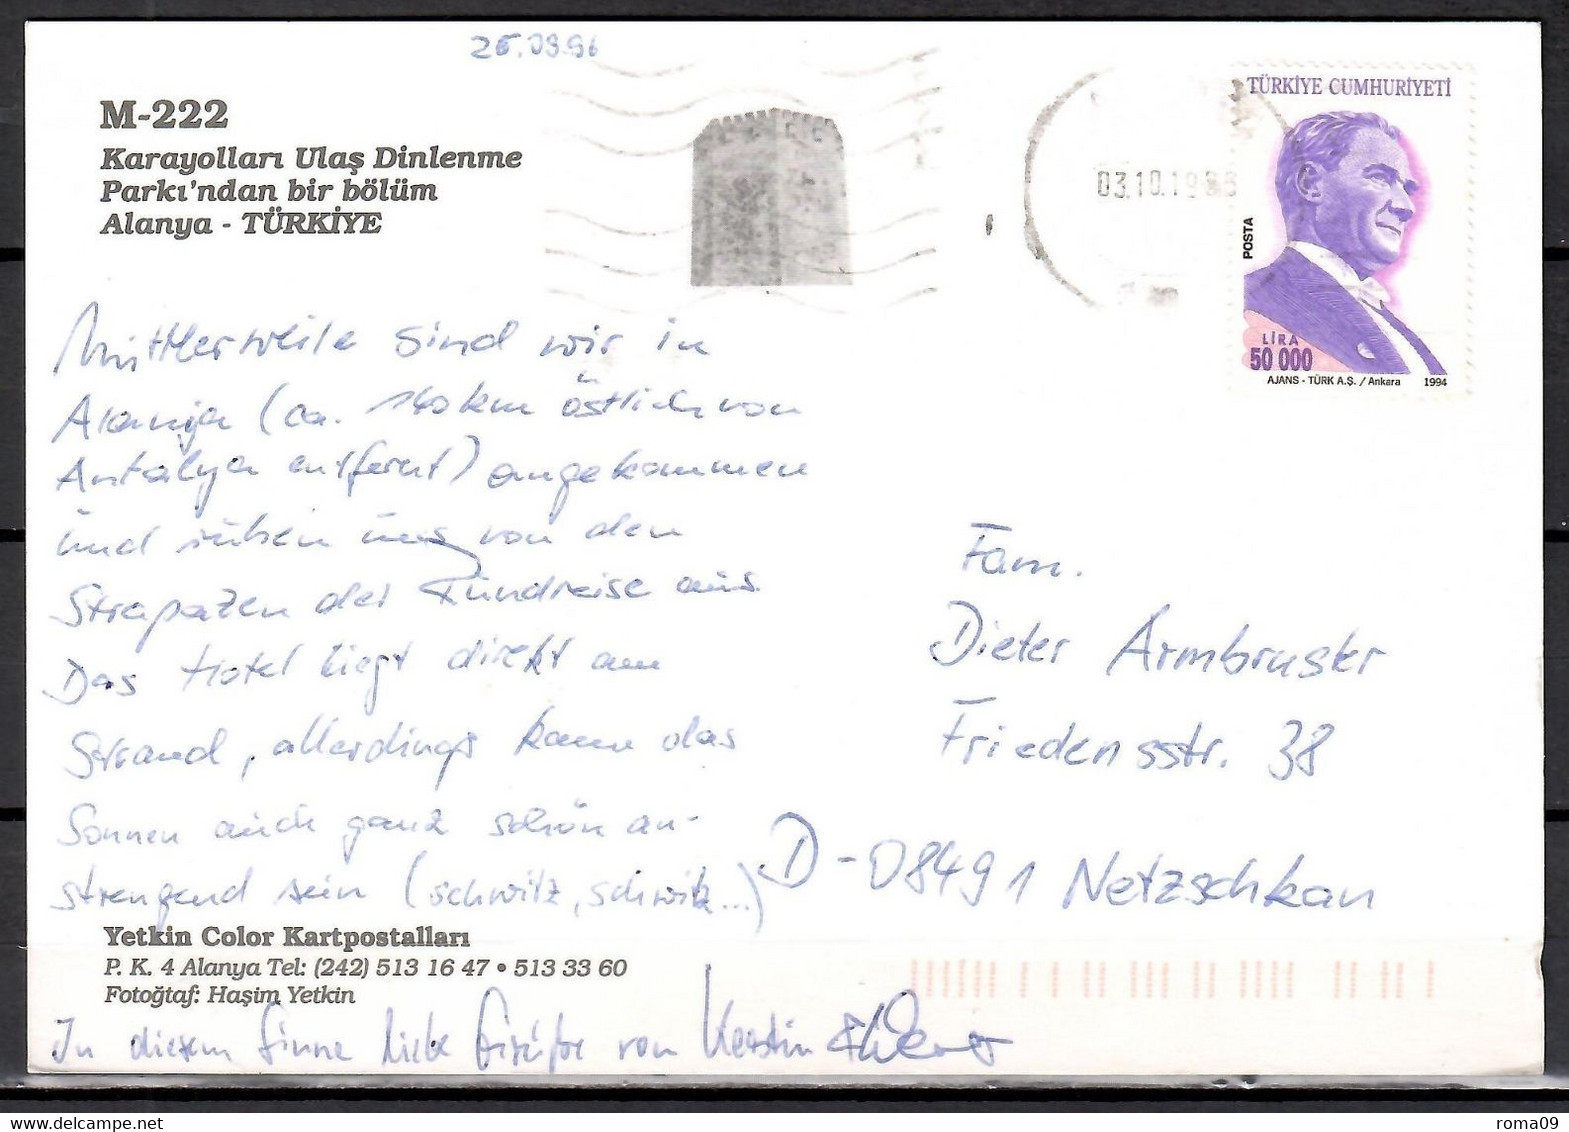 26.09.96
M-222
Karayolları Ulaş Dinlenme
Parkı'ndan bir bölüm
Alanya - TÜRKİYE
03.10.199
TÜRKİYE CUMHURİYETİ
POSTA
LİRA
50 000
AJANS - TÜRK A.Ş. / Ankara 1994
Mittlerweile sind wir in
Alanya (ca. 140 km östlich von
Antalya entfernt) angekommen
und ruhen uns von den
Strapazen der Rundreise aus.
Das Hotel liegt direkt am
Strand, allerdings kann das
Sonnen auch ganz schön an-
strengend sein (schwitz, schwitz...)
Fam.
Dieter Armbruster
Friedensstr. 38
D-08491 Netzschkau
Yetkin Color Kartpostalları
P. K. 4 Alanya Tel: (242) 513 16 47 • 513 33 60
Fotoğtaf: Haşim Yetkin
In diesem Sinne liebe Grüße von Kerstin &
roma09